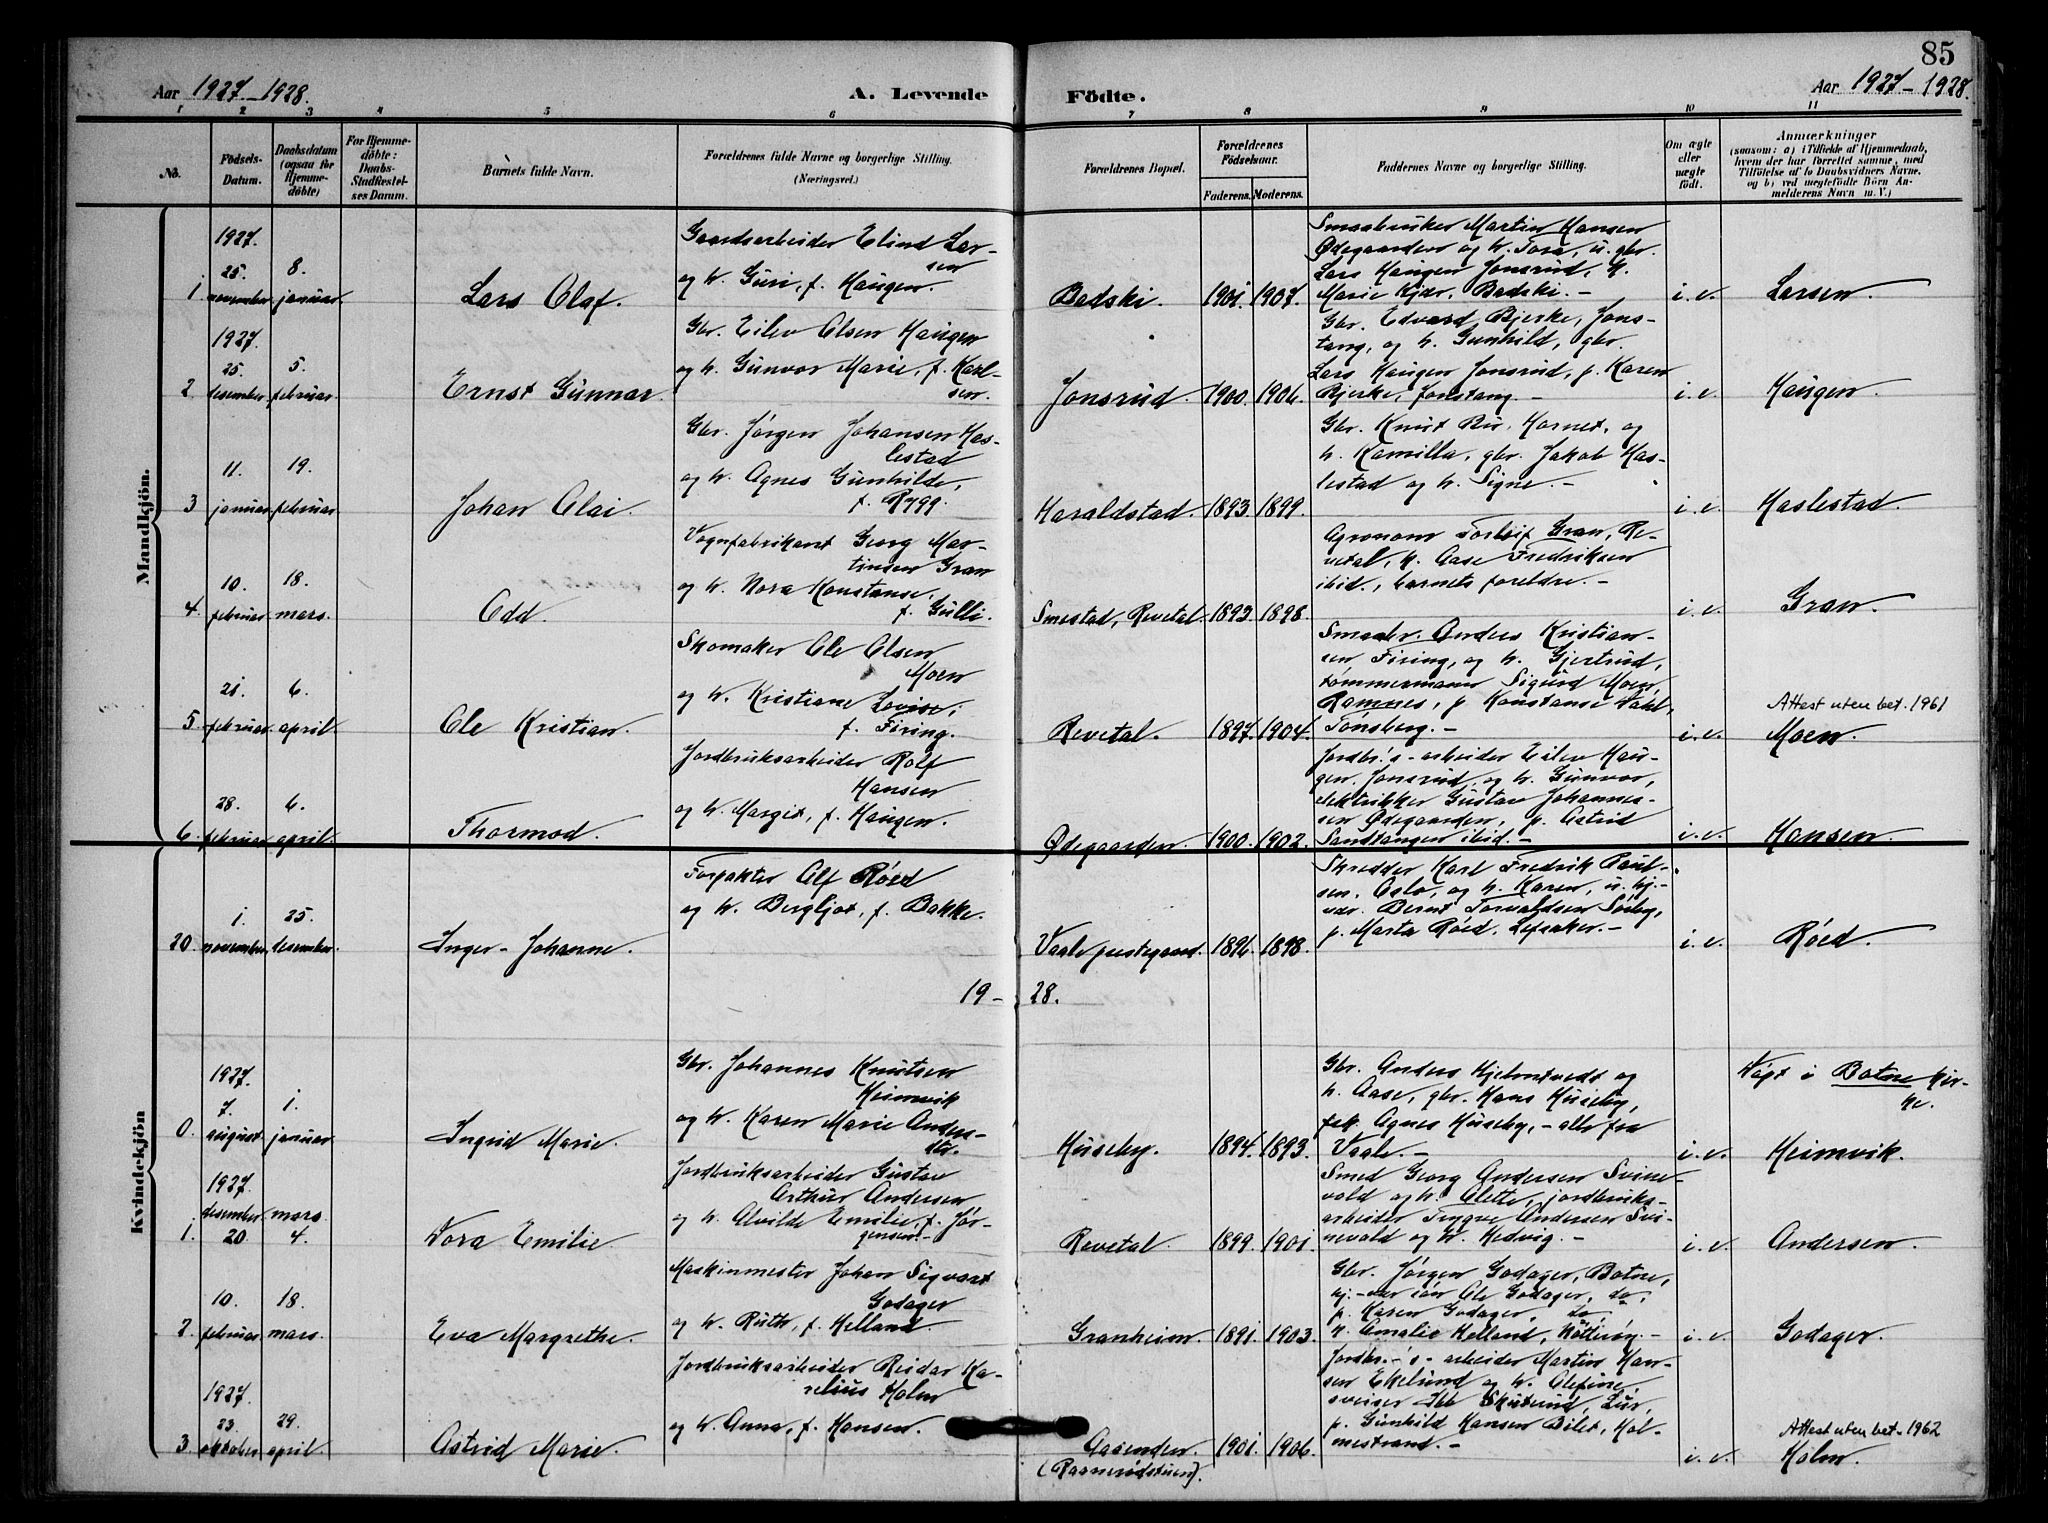 85
Aar 1927-1928. A. Levende Födte. Aar 1927-1928.
1 2 3 4 5 6 7 8 9 10 11
No.
Födsels-
Datum.
Daabsdatum
(ogsaa for
Hjemme-
döbte)
For Hjemme-
döbte:
Daabs-
Stadfæstel-
ses Datum.
Barnets fulde Navn.
Forældrenes fulde Navne og borgerlige Stilling.
(Næringsvei.)
Forældrenes Bopæl.
Forældrenes
Födselsaar.
Faderens. Moderens.
Faddernes Navne og borgerlige Stilling.
Om ægte
eller
uægte
födt.
Anmærkninger
(saasom: a) i Tilfælde af Hjemmedaab,
hvem der har forrettet samme, med
Tilföielse af to Daabsvidners Navne,
og b) ved uægtefödte Börn An-
melderens Navn m. V.)
Mandkjön.
1927.
25. 8.
1 november. januar.
Lars Olaf.
Gaardsarbeider Elind Lar-
sen
og h. Guri, f. Haugen.
Bedski. 1901. 1907.
Smaabruker Martin Hansen
Ødegaarden og h. Tora, u. gbr.
Lars Haugen Jonsrud, h.
Marie Kjær, Bedski. -
i. e. Larsen.
1927.
25. 5.
2 desember. februar.
Ernst Gunnar.
Gbr. Eilev Olsen Haugen
og h. Gunvor Marie, f. Karl-
sen.
Jonsrud. 1900. 1906.
Gbr. Edvard Bjerke, Jons-
tang, og h. Gunhild, gbr.
Lars Haugen Jonsrud, p. Karen
Bjerke, Jonstang. -
i. e. Haugen.
11. 19.
3 januar. februar.
Johan Olai.
Gbr. Jørgen Johansen Has-
lestad
og h. Agnes Gunhilde,
f. Rygg.
Haraldstad. 1893. 1899.
Gbr. Knut Bu, Hornet, og
h. Kamilla, gbr. Jakob Has-
lestad og h. Signe. -
i. e. Haslestad.
10. 18.
4. februar. mars.
Odd.
Vognfabrikant Georg Mar-
tinsen Gran
og h. Nora Konstanse,
f. Gulli.
Smestad, Revetal. 1893. 1898.
Agronom Torleif Gran, Re-
vetal, h. Aase Fredriksen
ibid., barnets foreldre. -
i. e. Gran.
21. 6.
5 februar. april.
Ole Kristian.
Skomaker Ole Olsen
Moen
og h. Kristiane Lovise,
f. Firing.
Revetal. 1897. 1904.
Smaabr. Anders Kristian-
sen Firing, og h. Gjertrud,
tømmermann Sigurd Moen,
Ramnes, p. Konstanse Dahl,
Tønsberg. -
i. e. Attest uten bet. 1961
Moen.
28. 6.
6. februar. april.
Thormod.
Jordbruksarbeider Rolf
Hansen
og h. Margit, f. Haugen.
Ødegaarden. 1900. 1902.
Jordbr.'s-arbeider Eilev Hau-
gen, Jonsrud, og h. Gunvor,
elektrikker Gustav Johannes-
sen Ødegaarden, p. Astrid
Sandtangen ibid. -
i. e. Hansen.
Kvindekjön
1. 25.
20. november. desember.
Inger-Johanne.
Forpakter Alf Røed
og h. Bergljot, f. Bakke.
Vaale prestegaard. 1896. 1898.
Skredder Karl Fredrik Paul-
sen, Oslo, og h. Karen, u. hj.-
vær. Bernt Torvaldsen Seeby,
p. Marta Røed, Lefsaker. -
i. e. Røed.
19-28.
1927.
7. 1.
0. august. januar.
Ingrid Marie.
Gbr. Johannes Knutsen
Heimvik
og h. Karen Marie Anders-
dtr.
Huseby. 1894. 1893.
Gbr. Anders Hjelmtvedt og
h. Aase, gbr. Hans Huseby,
frk. Agnes Huseby, - alle fra
Vaale. -
i. e. Døpt i Botne kir-
ke.
Heimvik.
1927.
desember. mars.
1. 20 4.
Nora Emilie.
Jordbruksarbeider Gustav
Arthur Andersen
og h. Alvilde Emilie, f. Jør-
gensen. -
Revetal. 1899. 1901.
Smed Georg Andersen Svine-
vald og h. Alette, jordbruks-
arbeider Trygve Andersen Svi-
nevald og h. Hedvig. -
i. e. Andersen.
10. 18.
2. februar. mars.
Eva Margrethe.
Maskinmester Johan Sigvart
Godager
og h. Ruth, f. Helland
Granheim. 1891. 1903.
Gbr. Jørgen Godager, Botne,
Ole Godager, do,
p. Karen Godager, do,
h. Amalie Helland, Nøtterøy. -
i. e. Godager.
1927.
23. 29.
3 oktober. april.
Astrid Marie.
Jordbruksarbeider Reidar Ka-
relius Holm
og h. Anna, f. Hansen.
Aasenden. 1901. 1906.
(Raanerødstuen).
Jordbr.-'s-arbeider Martin Han-
sen Ekelund og h. Olefine,
sveiser Skuterud, Lur,
p. Gunhild Hansen Bilet, Hol-
mestrand. -
i. e. Attest uten bet. 1962
Holm.